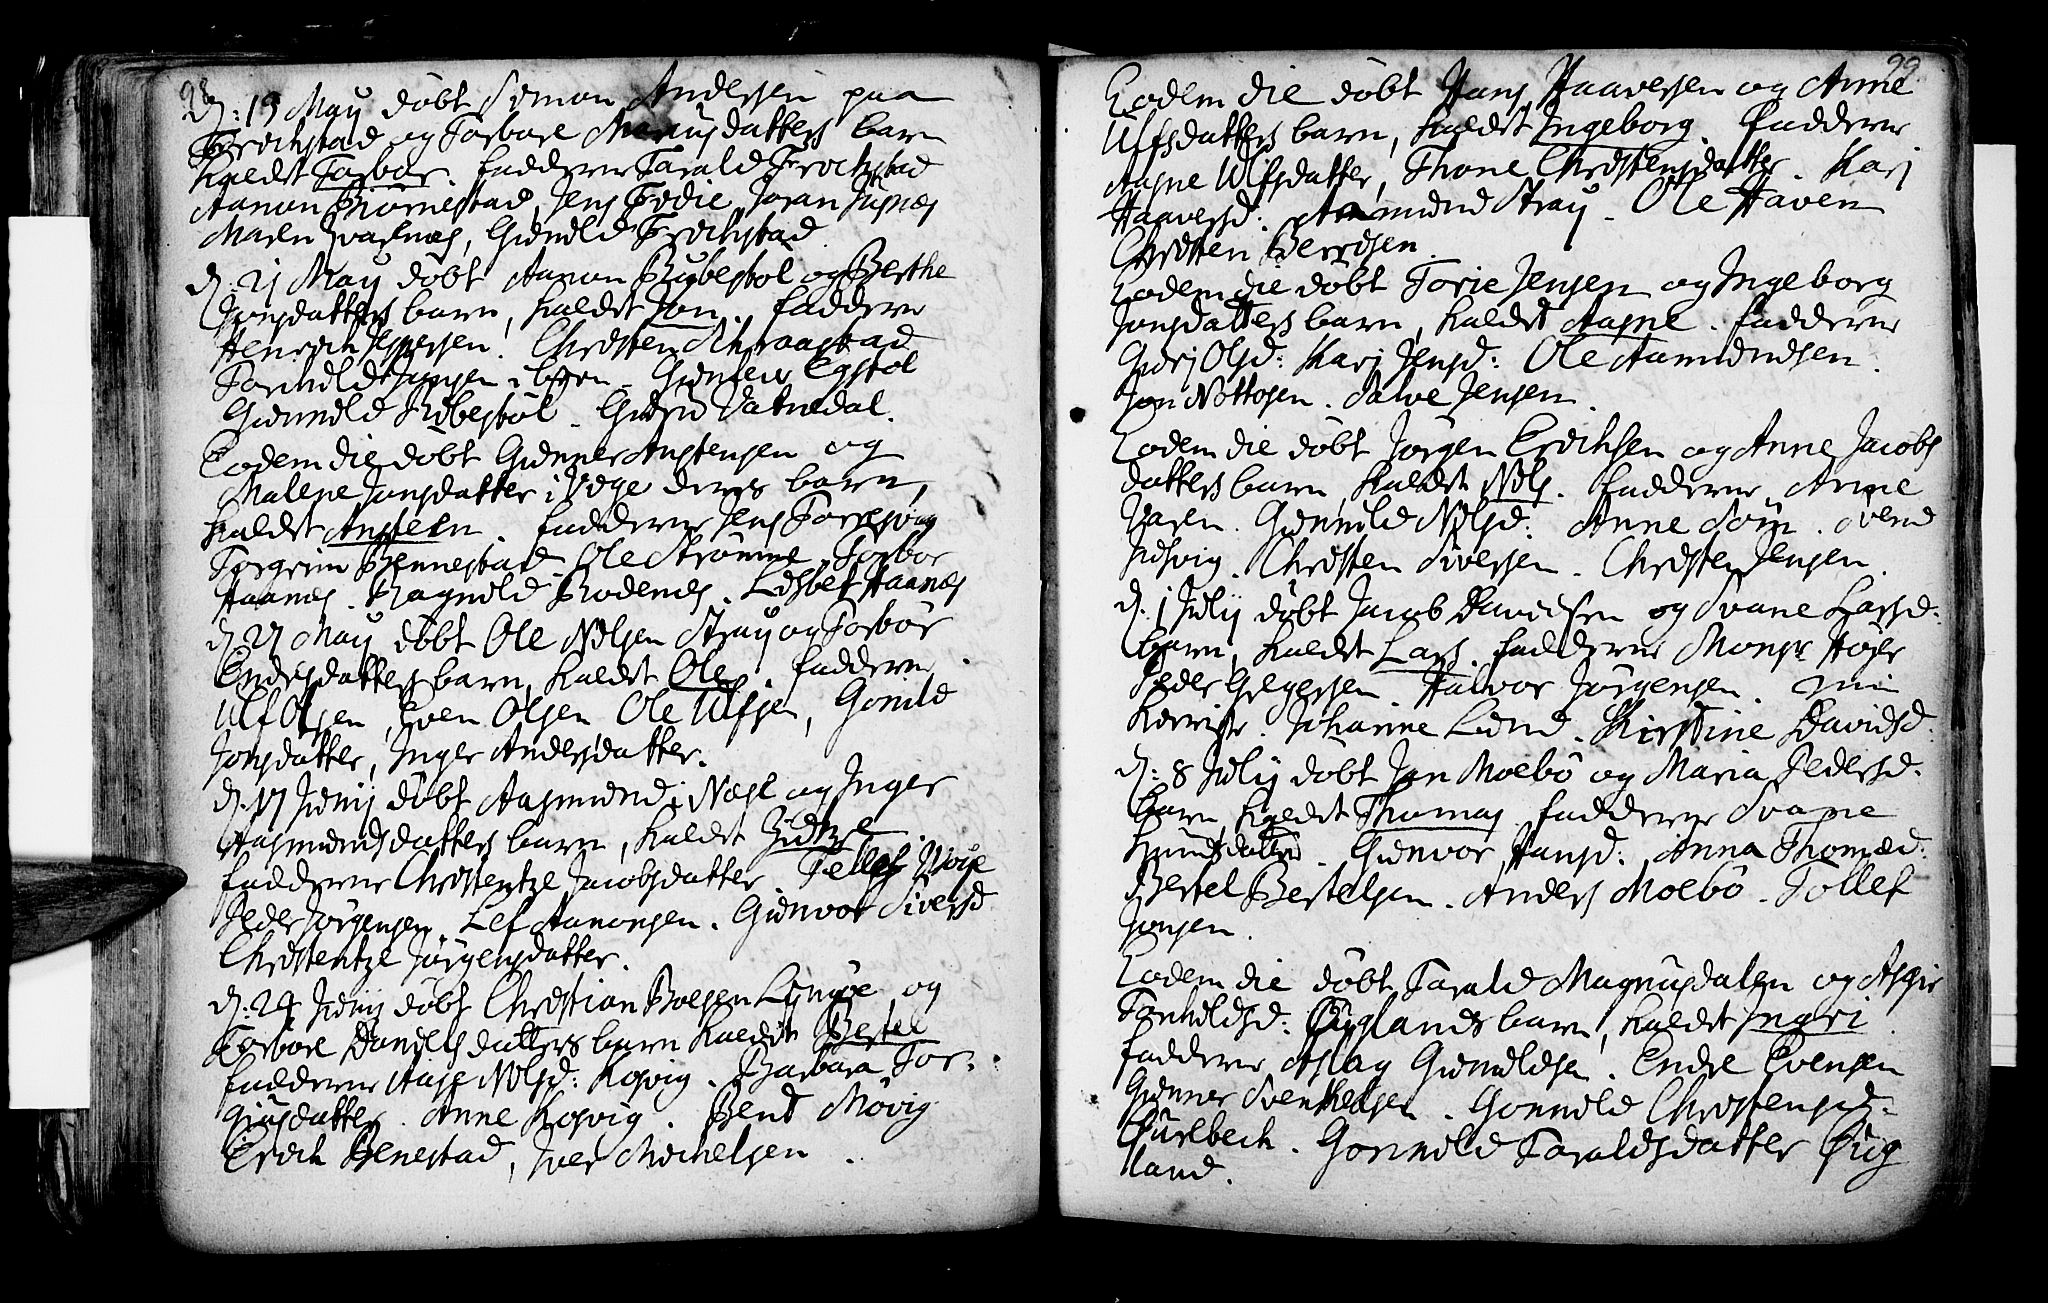 98.
d: 19 May döbt Simon Andersen paa
Frochstad og Torbore Mariusdatters barn
Kaldet Torbör. fadderne Tarald Frochstad
Aanon Biörnestad, Jens Tvedie, Joran
Maren Kvarenes, Gunild Frochstad.
d: 21 May döbt Aanon Bubestöl og Berthe
Jonsdatters barn, Kaldet Jon. fadderne
Henrich Jespersen. Christen Schraastad
Tarkild Jensen i byen. Gunleu Egstöl
Gunnild Ribestöl. Guri Vatnedal.
Eodem die döbt Gunner Anstensen og
Malene Jonsdatter i Vige deres barn,
Kaldet Ansten. fadderne Jens Torresvig
Torgrim Bennestad. Ole Strömme. Torbör
Haanes. Ragnild Rodenes. Lisbet Haanes
d: 27 May döbt Ole Nilsen Stray og Torbör
Endresdatters barn, Kaldet Ole. fadderne
Ulf Olsen, Even Olsen Ole Ulfsen, Gonild
Jonsdatter, Inger Andersdatter.
d: 17 Junij döbt Aasmund i Nese og Inger
Aasmundsdatters barn, Kaldet Zidtze
fadderne Christentze Jacobsdatter. Tellef Voye
Peder Jörgensen. Lef Aanonsen. Gunvor Siversd
Christentze Jörgensdatter.
d: 24 Junij döbt Christian Boesen Lingöe og
Torbore Danielsdatters barn Kaldet Bertel
fadderne Aase Nilsd: Kosvig. Barbara Tor:
giusdatter. Anne Kosvig. Bent Movig
Erich Benestad, Iver Michelsen.
99.
Eodem die döbt Hans Haaversen og Anne
Ulfsdatters barn, Kaldet Ingeborg. fadderne
Aasne Ulfsdatter, Thone Christensdatter. Kari
Haaversd: Aamund Stray. Ole Haaven
Christen Berrdsen.
Eodem die döbt Torie Jensen og Ingeborg
Jonsdatters barn, Kaldet Aasne. fadderne
Guri Olsd: Kari Jensd: Ole Aamundsen.
Jon Nottosen. Salve Jensen.
Eodem die döbt Jörgen Erichsen og Anne Jacobs
datters barn Kaldet Nils. fadderne Anne
Varen. Gunnild Nilsd: Anne Söm. Svend
Justvig. Christen Siversen. Christen Jensen.
d: 1 Julij döbt Jacob Davidsen og Svane Larsd:
barn, Kaldet Lars. fadderne Monsr Höyer
Peder Gregersen. Halvor Jörgensen. min
Kierrist. Johanne Lund. Kirstine Davidsd.
d: 8 Julij döbt Jan Moebö og Maria Pedersd.
barn, Kaldet Thomas. fadderne Svane
Knudsdatter. Gunvor Hansd: Anna Thomæd:
Bertel Bertelsen. Anders Moebö. Tollef
Jonsen.
Eodem die döbt Tarald Magnusdalen og Asgir
Tarkildsd: Öuglands barn, Kaldet Ingri.
fadderne Aslag Gunuldsen. Endre Evensen
Gunner Svenkedsen. Gonnild Christensd:
Ourebech. Gonnild Taraldsdatter Öug
land.